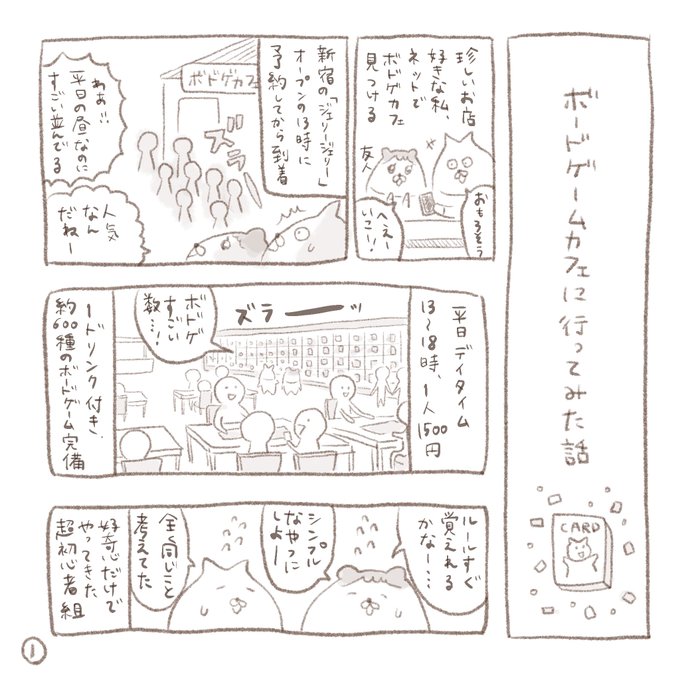 ボードゲームカフェに行ってみた話
CARD
珍しいお店
好きな私、
ネットで
ボドゲカフェ
見つける
友人
おもろそう
へぇー
いこ!!
新宿の「ジェリージェリー」
オープンの13時に
予約してから到着
ボドゲカフェ
ズラッ
わぁ!!
平日の昼なのに
すごい並んでる
人気
なん
だねー
平日デイタイム
13〜18時、1人1500円
ズラーーッ
ボドゲ
すごい
数…!
1ドリンク付き、
約600種のボードゲーム完備
ルールすぐ
覚えれる
かなー…
シンプル
なやつに
しよー
全く同じこと
考えてた
好奇心だけで
やってきた
超初心者組
1